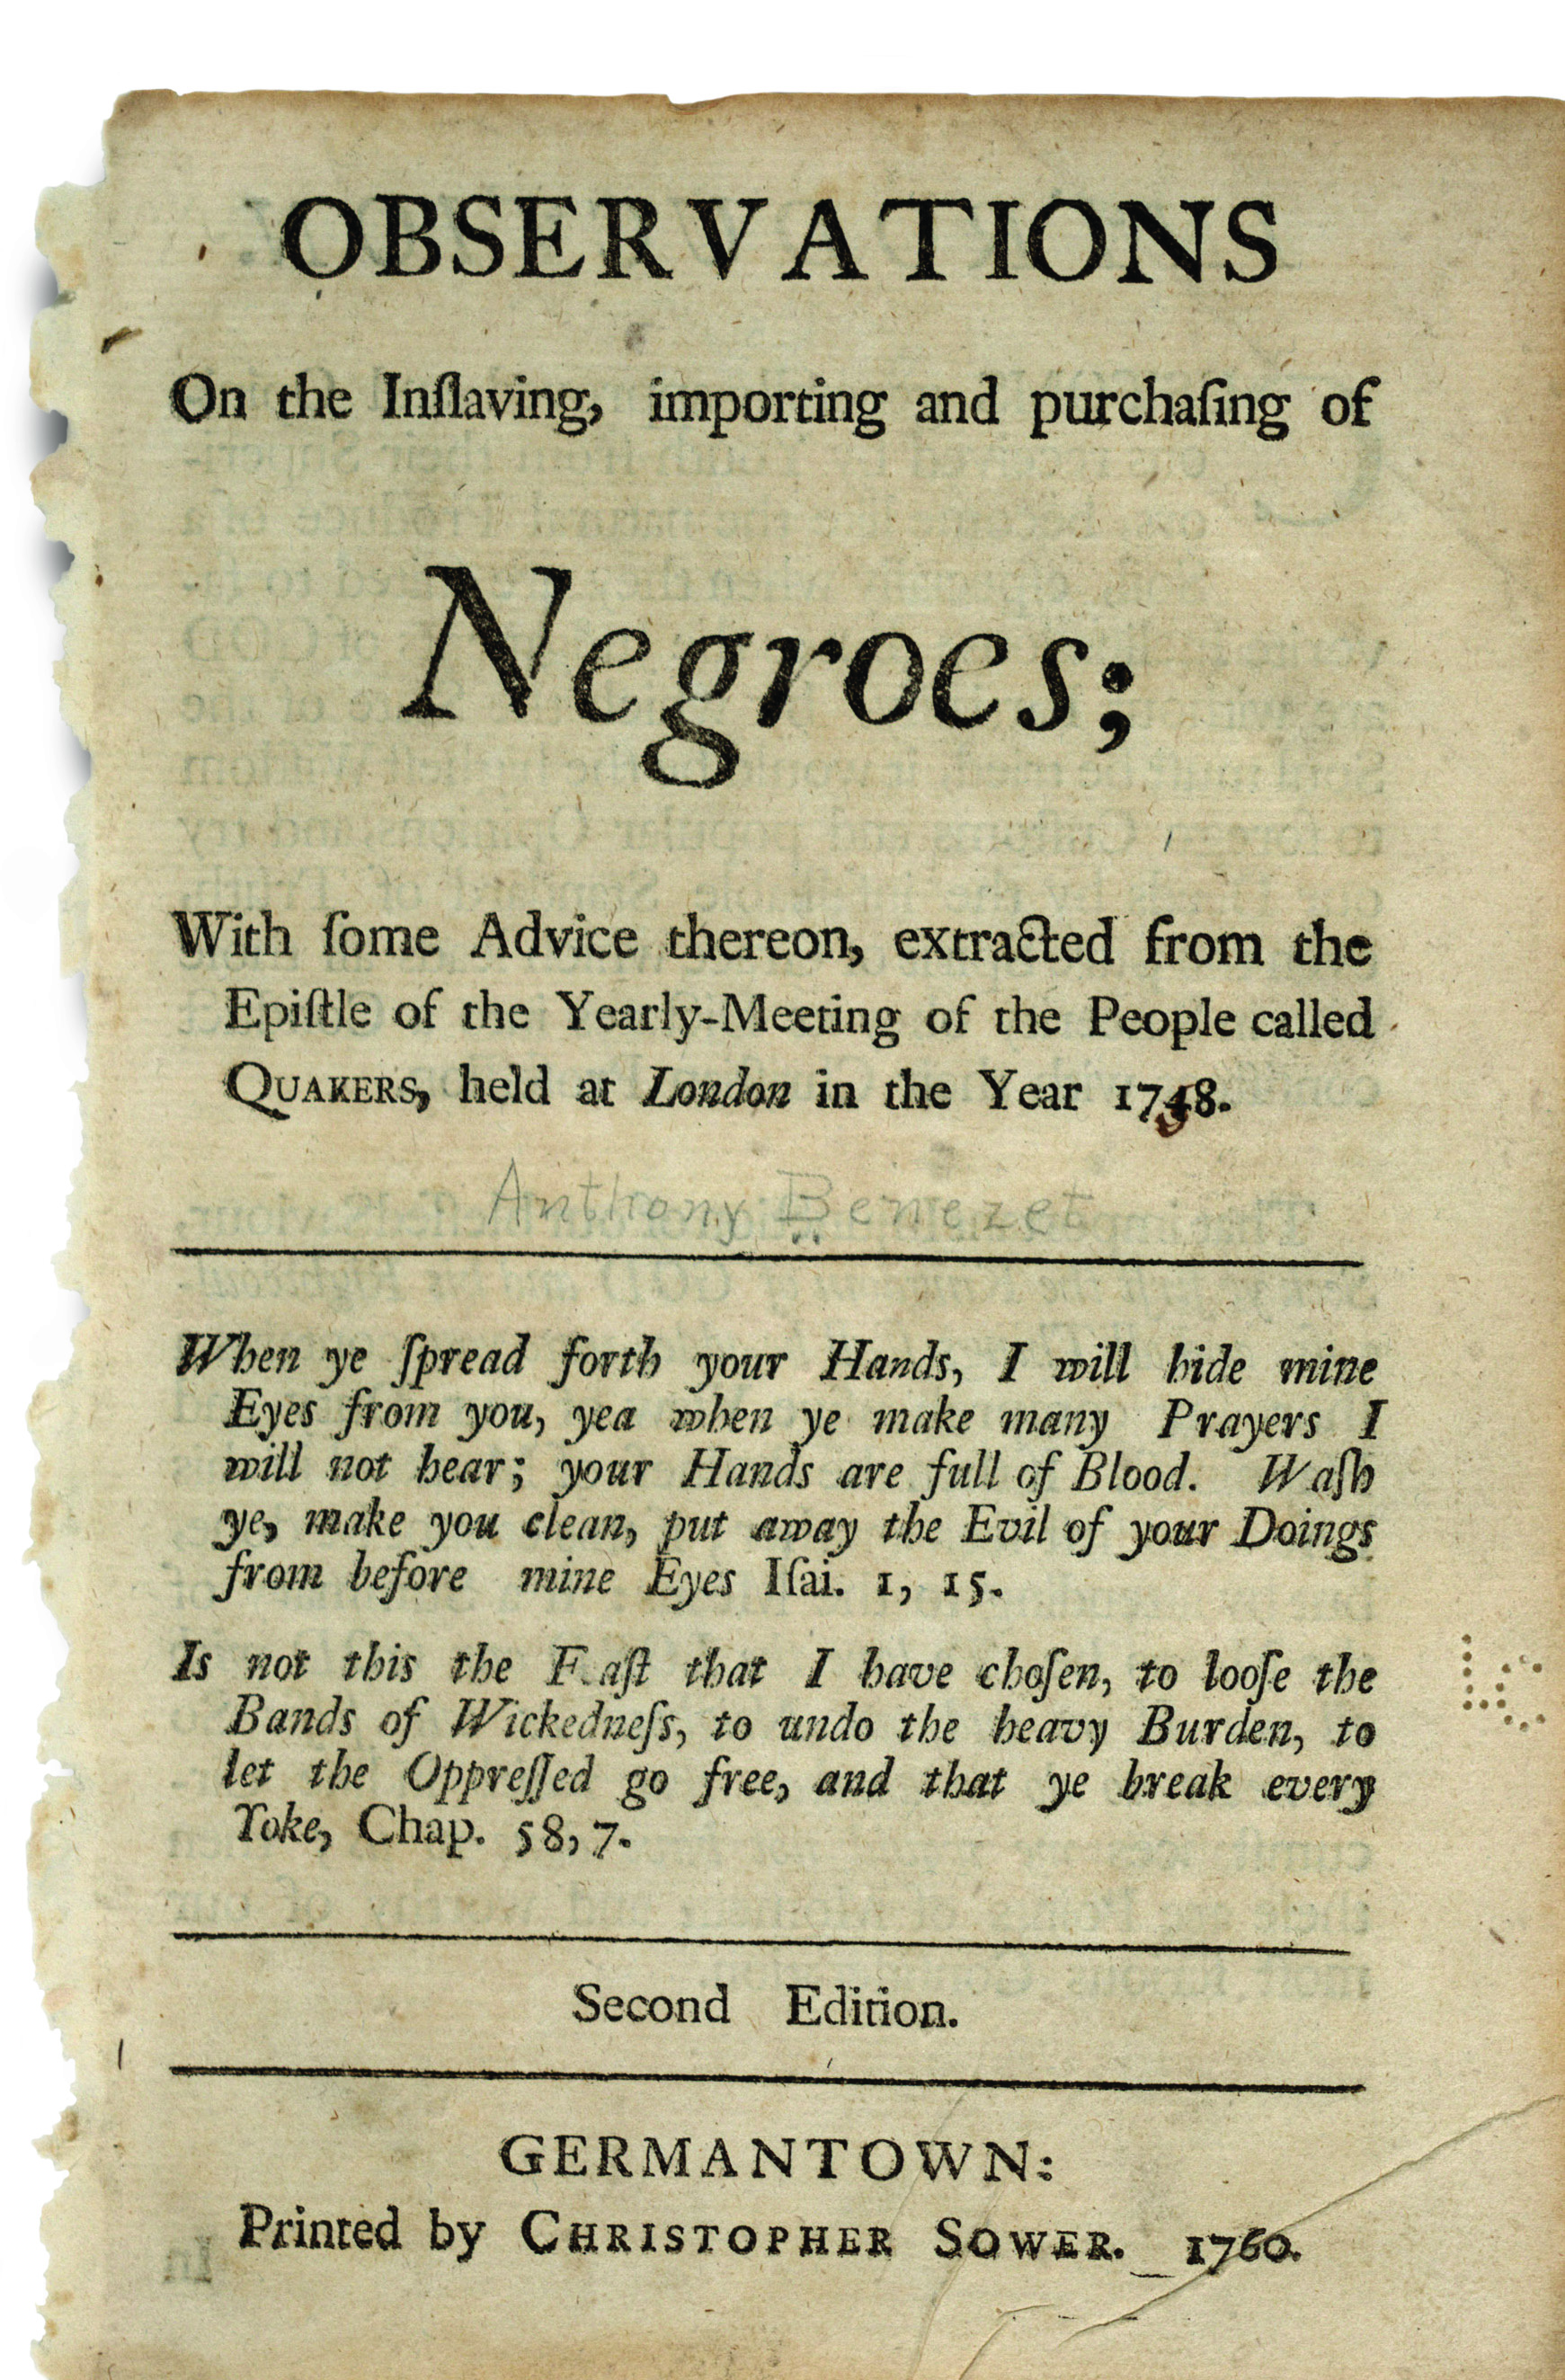 OBSERVATIONS
On the Inſlaving, importing and purchaſing of
Negroes;
With ſome Advice thereon, extracted from the
Epiſtle of the Yearly-Meeting of the People called
QUAKERS, held at London in the Year 1748.
Anthony Benezet
When ye ſpread forth your Hands, I will hide mine
Eyes from you, yea when ye make many Prayers I
will not hear; your Hands are full of Blood. Waſh
ye, make you clean, put away the Evil of your Doings
from before mine Eyes Iſai. 1, 15.
Is not this the Faſt that I have choſen, to looſe the
Bands of Wickedneſs, to undo the heavy Burden, to
let the Oppreſſed go free, and that ye break every
Yoke, Chap. 58, 7.
Second Edition.
GERMANTOWN:
Printed by CHRISTOPHER SOWER. 1760.